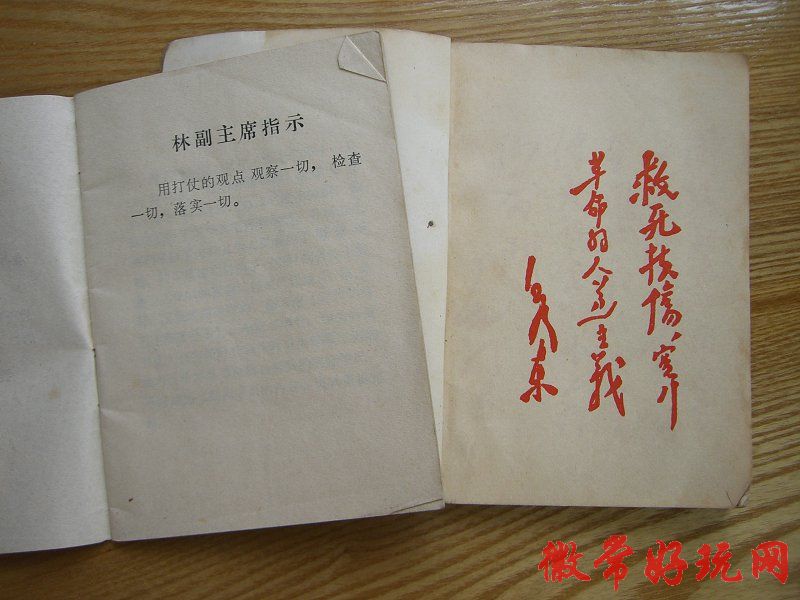 林副主席指示
用打仗的观点 观察一切， 检查
一切，落实一切。
救死扶傷，实行
革命的人道主義
毛泽东
徽常好玩网